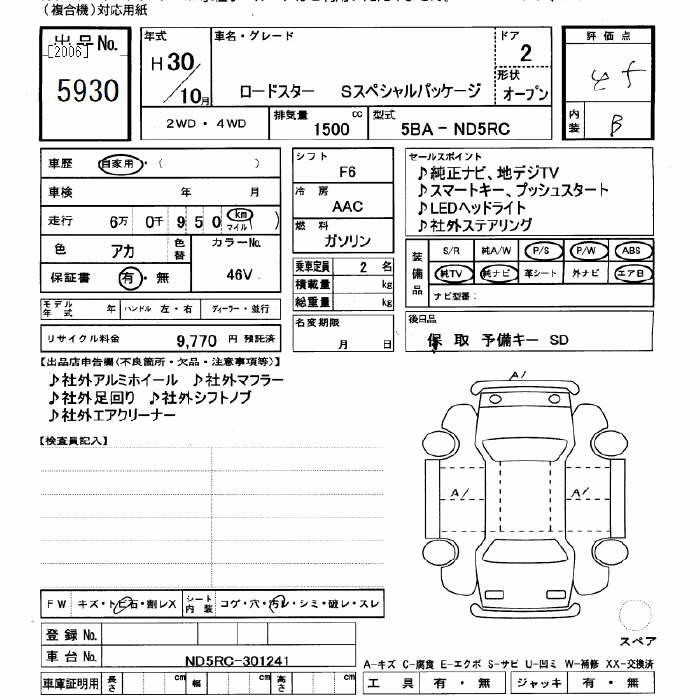 (複合機)対応用紙
出品No.
[2006]
5930
年式
H30/10月
車名・グレード
ロードスター Sスペシャルパッケージ
ドア
2
形状
オープン
2WD・4WD
排気量
1500 cc
型式
5BA-ND5RC
評価点
内装
B
車歴 自家用・( )
車検 年 月
走行 6万 0千 9 5 0 km マイル
色 アカ 色替 カラーNo.
保証書 有・無 46V
モデル年式 年 ハンドル 左・右 ディーラー・並行
リサイクル料金 9,770 円 預託済
シフト
F6
冷房
AAC
燃料
ガソリン
乗車定員 2 名
積載量 kg
総重量 kg
名変期限
月 日
セールスポイント
♪純正ナビ、地デジTV
♪スマートキー、プッシュスタート
♪LEDヘッドライト
♪社外ステアリング
装備品
S/R 純A/W P/S P/W ABS
純TV 純ナビ 革シート 外ナビ エアB
ナビ型番:
後日品
保 取 予備キー SD
【出品店申告欄(不良箇所・欠品・注意事項等)】
♪社外アルミホイール ♪社外マフラー
♪社外足回り ♪社外シフトノブ
♪社外エアクリーナー
【検査員記入】
A1
A1 A1
FW キズ・トビ石・割レX シート内装 コゲ・穴・汚レ・シミ・破レ・スレ
スペア
登録No.
車台No. ND5RC-301241
A-キズ C-腐食 E-エクボ S-サビ U-凹ミ W-補修 XX-交換済
車庫証明用 長さ cm 幅 cm 高さ cm
工具 有・無 ジャッキ 有・無